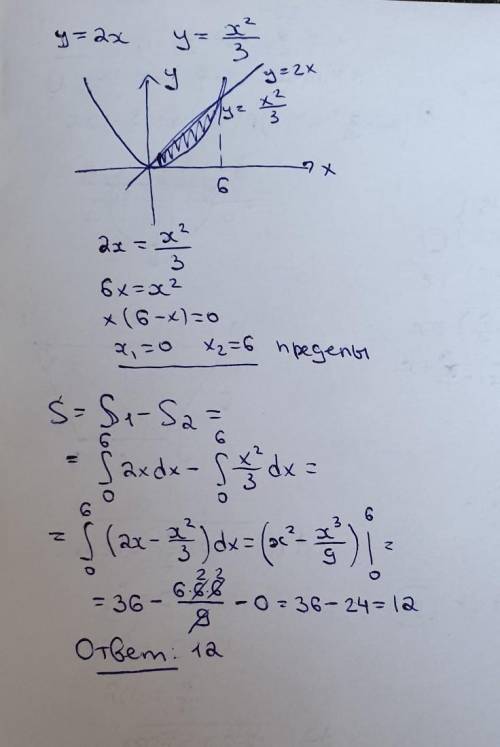 y = 2x    y = x²/3
y
y = 2x
y = x²/3
x
6
2x = x²/3
6x = x²
x(6 - x) = 0
x₁ = 0   x₂ = 6   пределы
S = S₁ - S₂ =
= ∫₀⁶ 2x dx - ∫₀⁶ x²/3 dx =
= ∫₀⁶ (2x - x²/3) dx = (x² - x³/9) |₀⁶ =
= 36 - 6·6̶²·6̶²/9̶ - 0 = 36 - 24 = 12
Ответ: 12